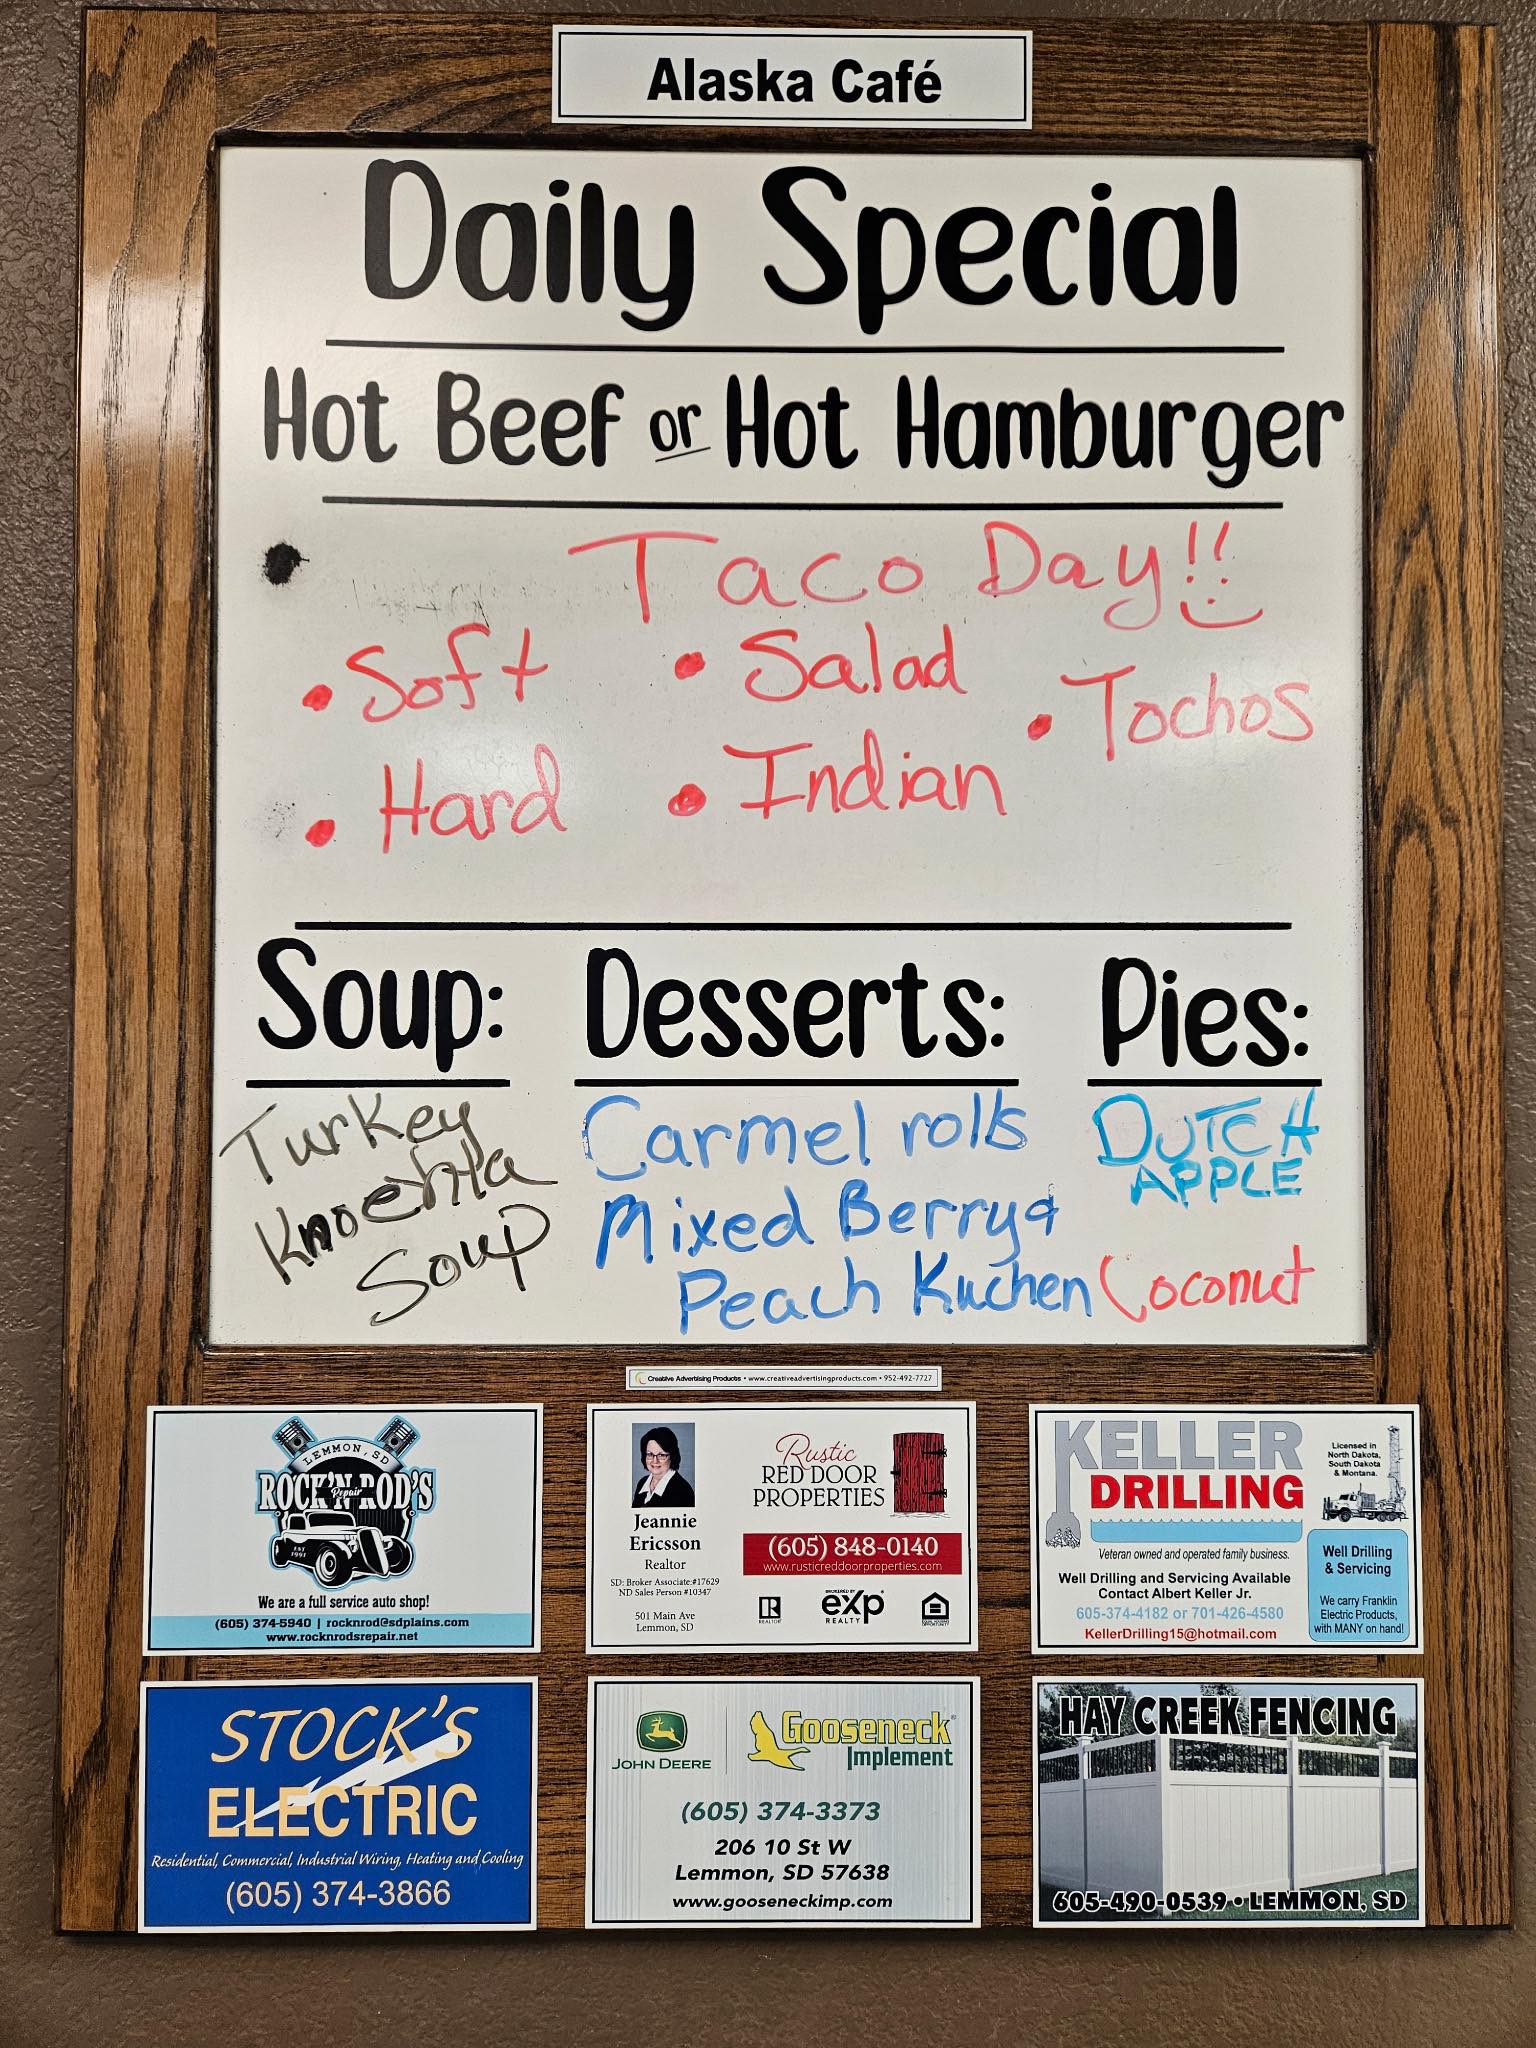 Alaska Café
Daily Special
Hot Beef or Hot Hamburger
Taco Day!!
• Soft
• Salad
• Tochos
• Hard
• Indian
Soup:
Turkey
Knoephla
Soup
Desserts:
Carmel rolls
Mixed Berry &
Peach Kuchen
Pies:
DUTCH
APPLE
Coconut
Creative Advertising Products • www.creativeadvertisingproducts.com • 952-492-7727
LEMMON, SD
ROCK'N ROD'S
Repair
EST
1991
We are a full service auto shop!
(605) 374-5940 | rocknrod@sdplains.com
www.rocknrodsrepair.net
Jeannie
Ericsson
Realtor
SD: Broker Associate:#17629
ND Sales Person #10347
501 Main Ave
Lemmon, SD
Rustic
RED DOOR
PROPERTIES
(605) 848-0140
www.rusticreddoorproperties.com
REALTOR
BROKERED BY
exp
REALTY
EQUAL HOUSING
OPPORTUNITY
KELLER
DRILLING
Licensed in
North Dakota,
South Dakota
& Montana.
Veteran owned and operated family business.
Well Drilling and Servicing Available
Contact Albert Keller Jr.
605-374-4182 or 701-426-4580
KellerDrilling15@hotmail.com
Well Drilling
& Servicing
We carry Franklin
Electric Products,
with MANY on hand!
STOCK'S
ELECTRIC
Residential, Commercial, Industrial Wiring, Heating and Cooling
(605) 374-3866
JOHN DEERE
Gooseneck®
Implement
(605) 374-3373
206 10 St W
Lemmon, SD 57638
www.gooseneckimp.com
HAY CREEK FENCING
605-490-0539 • LEMMON, SD